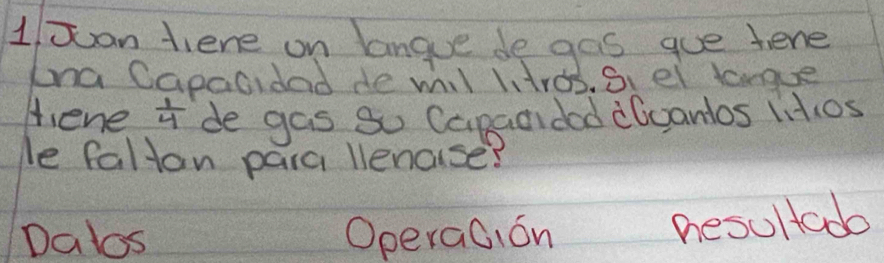 1 Juan tiene un tanque de gas que tiene
una Capacidad de mil litros. Si el tanque
tiene 1/4 de gas su Capacidad ¿Cuantos litros
le faltan para llenarse?
Datos Operación Resultado